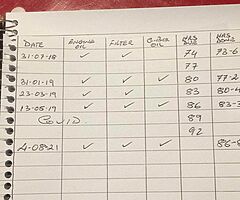 DATE ENGINE OIL FILTER G-BOX OIL WAS DUE WAS DONE
31-07-18 ✓ ✓ 74 73-6
77
31-01-19 ✓ ✓ ✓ 80 77-2
23-03-19 ✓ ✓ ✓ 83 80-4
13-05-19 ✓ ✓ ✓ 86 83-3
COVID. 89
92
4-08-21 ✓ ✓ ✓ 86-8